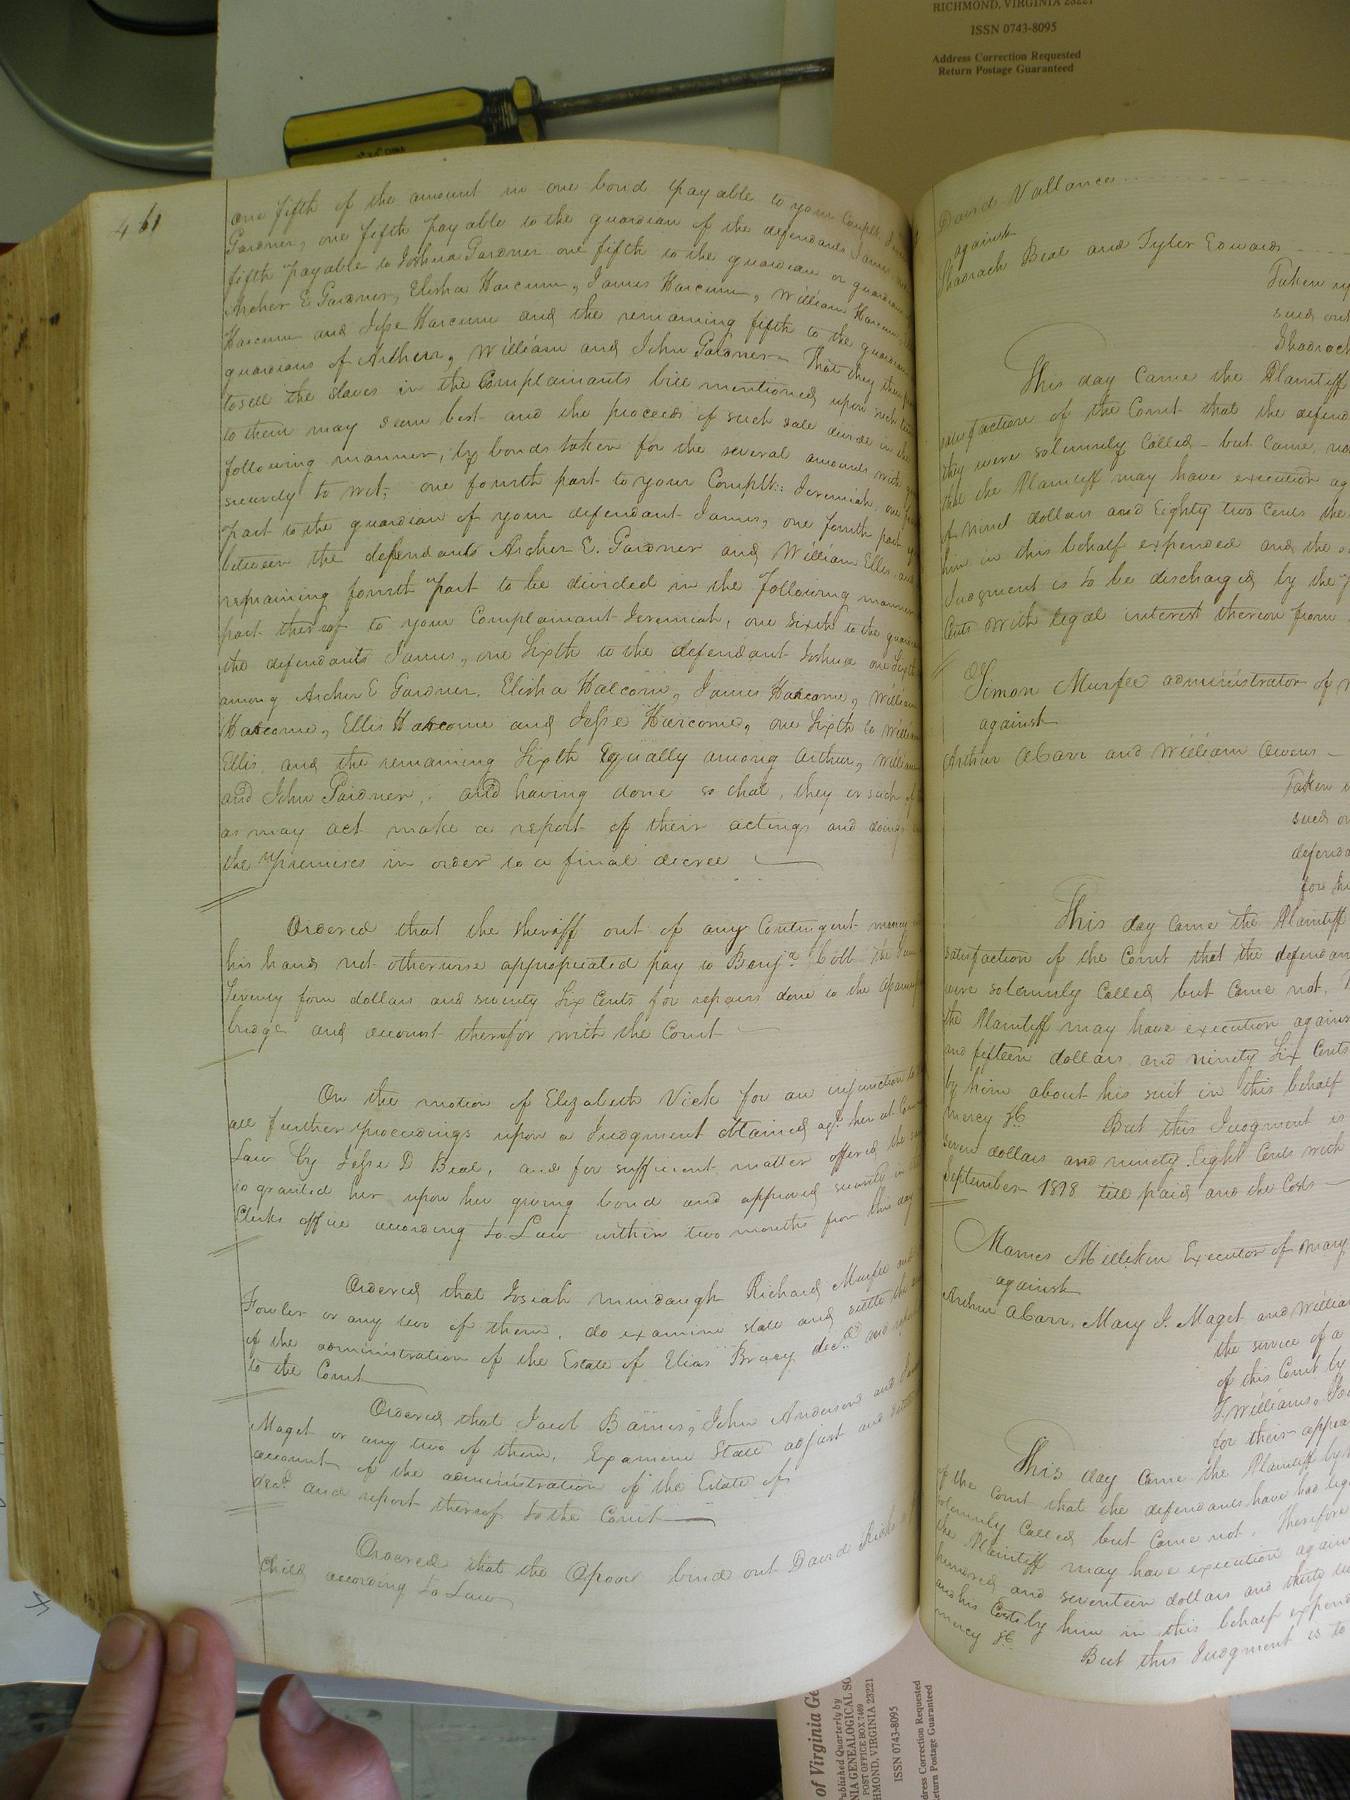 RICHMOND, VIRGINIA 23221
ISSN 0743-8095
Address Correction Requested
Return Postage Guaranteed
461
one fifth of the amount in one bond payable to your Complt
Gardner, one fifth payable to the guardian of the defendants James
fifth payable to Joshua Gardner one fifth to the guardian or guardians
Archer E Gardner, Elisha Harcum, James Harcum, William Harcum
Harcum and Jesse Harcum and the remaining fifth to the guardian
guardians of Arthur, William and John Gardner - That they then
to sell the slaves in the Complainants bill mentioned upon such
to them may seem best and the proceeds of such sale divide in the
following manner, by bonds taken for the several amounts with
security to wit; one fourth part to your Complt: Jeremiah, one
part to the guardian of your defendant James, one fourth part
between the defendants Archer E. Gardner and William Ellis and
remaining fourth part to be divided in the following manner
part thereof to your Complainant Jeremiah, one sixth to the
the defendants James, one sixth to the defendant Joshua one Sixth
among Archer E Gardner, Elisha Halcom, James Harcome, William
Harcome, Ellis Harcome and Jesse Harcome, one Sixth to William
Ellis, and the remaining Sixth Equally among Arthur, William
and John Gardner, and having done so that, they or such of
as may act make a report of their actings and doings
the premises in order to a final decree
Ordered that the sheriff out of any Contingent money
his hand not otherwise appropriated pay to Benja. Cobb the
Seventy four dollars and seventy Six Cents for repairs done to the
bridge and account therefor with the Court
On the motion of Elizabeth Vick for an injunction to
all further proceedings upon a Judgment obtained agt. her at
Law by Jesse D Beal, and for sufficient matter offered the
is granted her upon her giving bond and approved security in
Clerks office according to Law within two months from this day
Ordered that Josiah Murdaugh Richard Murfee and
Fowler or any two of them, do examine state and settle the
of the administration of the Estate of Elias Bracy decd. and
to the Court
Ordered that Jacob Barnes, John Anderson and
Maget or any two of them, Examine State adjust and
account of the administration of the Estate of
decd. and report thereof to the Court
Ordered that the Opoor bind out David
Child according to Law
David Vallance
against
Shadrach Beal and Tyler Edwards
Taken
sued out
Shadrach
This day came the Plaintiff
satisfaction of the Court that the
they were solemnly Called - but Came not
that the Plaintiff may have execution
of nine dollars and Eighty two Cents the
him in this behalf expended and the
Judgment is to be discharged by the
Cents with legal interest thereon from
Simon Murfee administrator of
against
Arthur A Carr and William Owens
Taken
sued
for
This day came the Plaintiff
satisfaction of the Court that the
were solemnly Called but Came not.
the Plaintiff may have execution against
and fifteen dollars and ninety Six Cents
by him about his suit in this behalf
mercy &c. But this Judgment is
seven dollars and ninety Eight Cents with
September 1818 till paid and the Costs
James Milliken Executor of Mary
against
Arthur A Carr, Mary J. Maget and William
the service of a
of this Court by
Williams,
for their
This day came the Plaintiff by
of the Court that the defendants have had
solemnly Called but Came not. Therefore
the Plaintiff may have execution against
hundred and seventeen dollars and thirty
and his Costs by him in this behalf
mercy &c.
But this Judgment is to
of Virginia Ge
Published Quarterly by
GENEALOGICAL SO
POST OFFICE BOX 7469
RICHMOND, VIRGINIA 23221
ISSN 0743-8095
Address Correction Requested
Return Postage Guaranteed